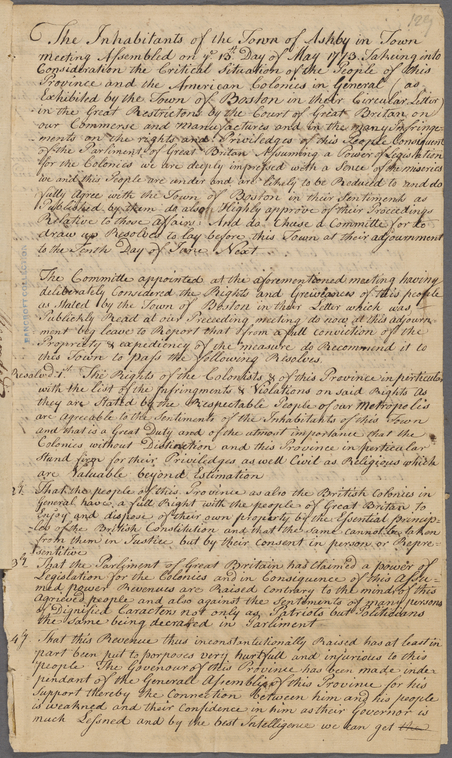 129
The Inhabitants of the Town of Ashby in Town
meeting Assembled on ye 13th Day of May 1773 Taking into
Consideration the Critical Situation of the People of this
Province and the American Colonies in General (as
Exhibited by the Town of Boston in their Circular Letter)
in the Great Restrictons by the Court of Great Britan on
our Commerse and manufactures and in the many Infringe-
ments on the rights and Priviledges of this People Consequent
of the Parliment of Great Britan Assuming a Power of Legislation
for the Colonies we are deeply impresed with a Sence of the miseries
we and this People are under and are likely to be Reduced to and do
fully Agree with the Town of Boston in their Sentiments as
Published by them do also Highly approve of their Proceedings
Relative to these Affairs And do Chuse a Committe for to
draw up Resolves to lay before this Town at their adjournment
to the Tenth Day of June Next
The Committe appointed at the aforementioned meeting having
deliberately Considered the Rights and Greivances of this people
as Stated by the Town of Boston in their Letter which was
Publickly Read at our Preceeding meeting do now at this adjourn
ment beg leave to Report that from a full conviction of the
Propriety & expidiency of the measure do Recommend it to
this Town to pass the following Resolves
Resolved 1st The Rights of the Colonists & of this Province in perticular
with the list of the Infringments & Violations on said Rights As
they are Stated by the Respectable People of our Metropolis
are agreable to the Sentiments of the Inhabitants of this Town
and that is a Great Duty and of the utmost Importance that the
Colonies without Distinction and this Province in perticular
Stand firm for their Priviledges as well Civil as Religious which
are Valuable beyond Estimation
2d That the people of this Province as also the British Colonies in
General have a full Right with the people of Great Britan to
Enjoy and dispose of their own property by the Essential princip-
les of the British Constitution and that the same cannot be taken
from them in Justice but by their consent in person or Repre-
sentitive
3d That the Parliment of Great Brittain has claimed a power of
Legislation for the Colonies and in Consequence of this Assu-
med power Revenues are Raised contrary to the mind of this
Agreived people and also against the Sentiments of many persons
of Dignified Caracters not only as Patriots but Politicians
the same being decreed in Parliment
4th That this Revenue thus inconstitutionally Raised has at least in
part ben put to porposes very hurtfull and injurious to this
people The Govenour of this Province has been made inde
pendant of the Generall Assemblys of this Province for his
Support thereby the Connection between him and his people
is weakned and their Confidence in him as their Governor is
much Lessned and by the best Intelligence we can get the
BANCROFT COLLECTION